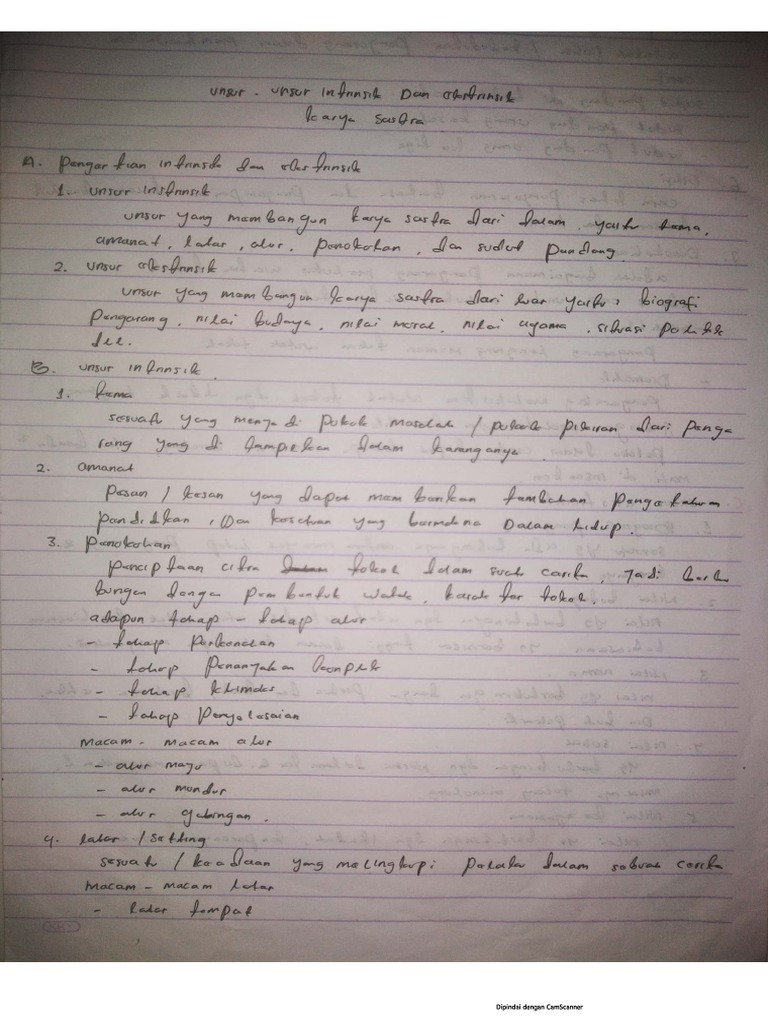 unsur - unsur intrinsik Dan ekstrinsik
karya sastra
A. Pengertian intrinsik dan ekstrinsik
1. unsur instrinsik
unsur yang membangun karya sastra dari dalam, yaitu tema,
amanat, latar, alur, penokohan, dan sudut pandang.
2. unsur ekstrinsik
unsur yang membangun karya sastra dari luar yaitu: biografi
pengarang, nilai budaya, nilai moral, nilai agama, situasi politik
dll.
B. unsur intrinsik.
1. tema
sesuatu yang menjadi pokok masalah / pokok pikiran dari penga
rang yang di tampilkan dalam karanganya.
2. amanat
pesan / kesan yang dapat memberikan tambahan pengetahuan
pendidikan, Dan yang bermakna Dalam hidup.
3. penokohan
penciptaan citra tokoh dalam suatu cerita, jadi berhu
bungan dengan pembentuk watak, karakter tokoh.
adapun tahap - tahap alur
- tahap perkenalan
- tahap penanjakan komplik
- tahap klimaks
- tahap penyelasaian
Macam - macam alur
- alur maju
- alur mundur
- alur gabungan.
4. latar / setting
sesuatu / keadaan yang melingkupi pelaku dalam sebuah cerita
Macam - macam latar
- latar tempat
KKY
Dipindai dengan CamScanner